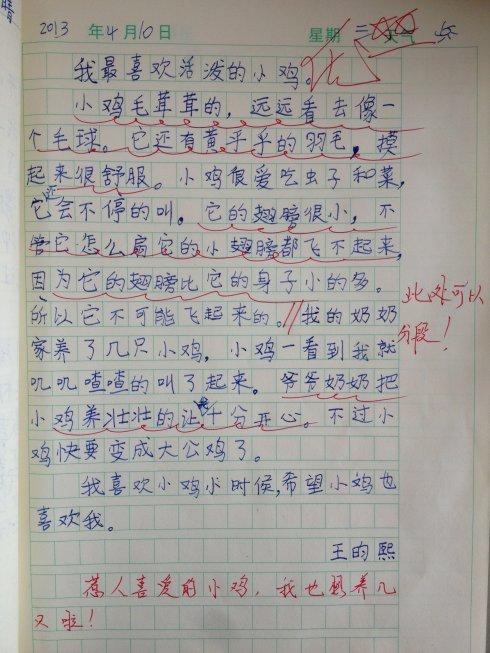 2013 年4月10日 星期三
我最喜欢活泼的小鸡。
小鸡毛茸茸的，远远看去像一
个毛球。它还有黄乎乎的羽毛，摸
起来很舒服。小鸡很爱吃虫子和菜，
它还会不停的叫。它的翅膀很小，不
管它怎么扇它的小翅膀都飞不起来，
因为它的翅膀比它的身子小的多。
此处可以
所以它不可能飞起来的。//我的奶奶
分段！
家养了几只小鸡，小鸡一看到我就
叽叽喳喳的叫了起来。爷爷奶奶把
小鸡养壮壮的让我十分开心。不过小
鸡快要变成大公鸡了。
我喜欢小鸡小时候，希望小鸡也
喜欢我。
王昀熙
惹人喜爱的小鸡，我也想养几
只啦！